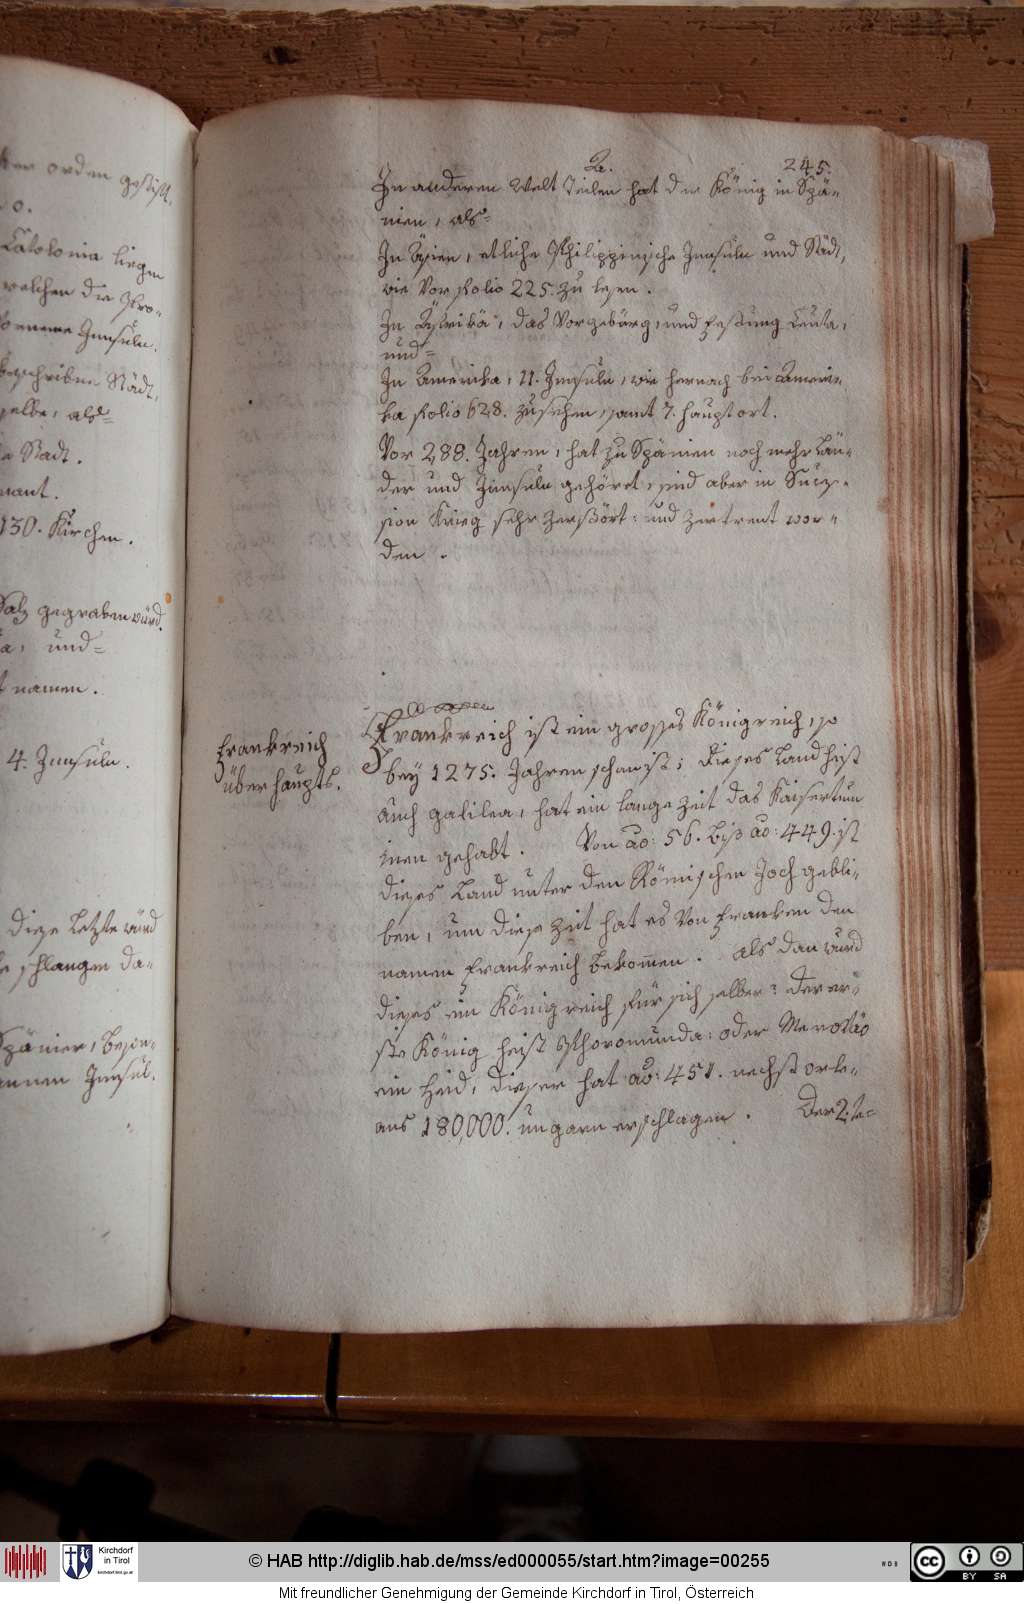 ker orden gestift.
o.
Catolonia liegen
welchen die Pro-
vorneme Jnnsuln.
beschriben Städt,
selbe, als=
Stadt.
nant.
130. Kirchen.
Salz gegraben würd.
a, und=
namen.
4. Jnnsuln.
Dise Letzte würd
schlangen da-
Spänier, beson-
Jnnsul.
2.
245.
Jn anderen Welt Teilen hat der König in Spä-
nien, als=
Jn Asien, etliche Philippinische Jnnsuln und Städt,
wie Vor Folio 225. zu lesen.
Jn Affrika, das Vorgebürg, und Festung Ceuta,
und=
Jn Amerika, 11. Jnnsuln, wie hernach bei Ameri-
ka Folio 628. zusehen, samt 7. haupt ort.
Vor 288. Jahren, hat zu Spänien noch mehr Län-
der und Jnnsuln gehört, sind aber in Suczes-
sion Krieg sehr zerstört: und zertrent wor=
den.
Frankreich
überhaupts.
Frankreich ist ein grosses Königreich, so
bey 1275. Jahren schon ist; dieses Land heist
auch galilea, hat ein lange zeit das Kaisertum
inen gehabt. Von ao: 56. biß ao: 449. ist
dieses Land unter den Römischen Joch gebli-
ben, um diese zeit hat es Von Franken den
namen Frankreich bekomen. als dan wurd
dieses ein Königreich für sich selber: der er-
ste König heist Phoromunda: oder Meroväo
ein Heid, dieser hat ao: 451. nechst orle-
ans 180,000. ungarn erschlagen. Der 2.te=
© HAB http://diglib.hab.de/mss/ed000055/start.htm?image=00255
Kirchdorf
in Tirol
kirchdorf.tirol.gv.at
WDB
cc
BY SA
Mit freundlicher Genehmigung der Gemeinde Kirchdorf in Tirol, Österreich